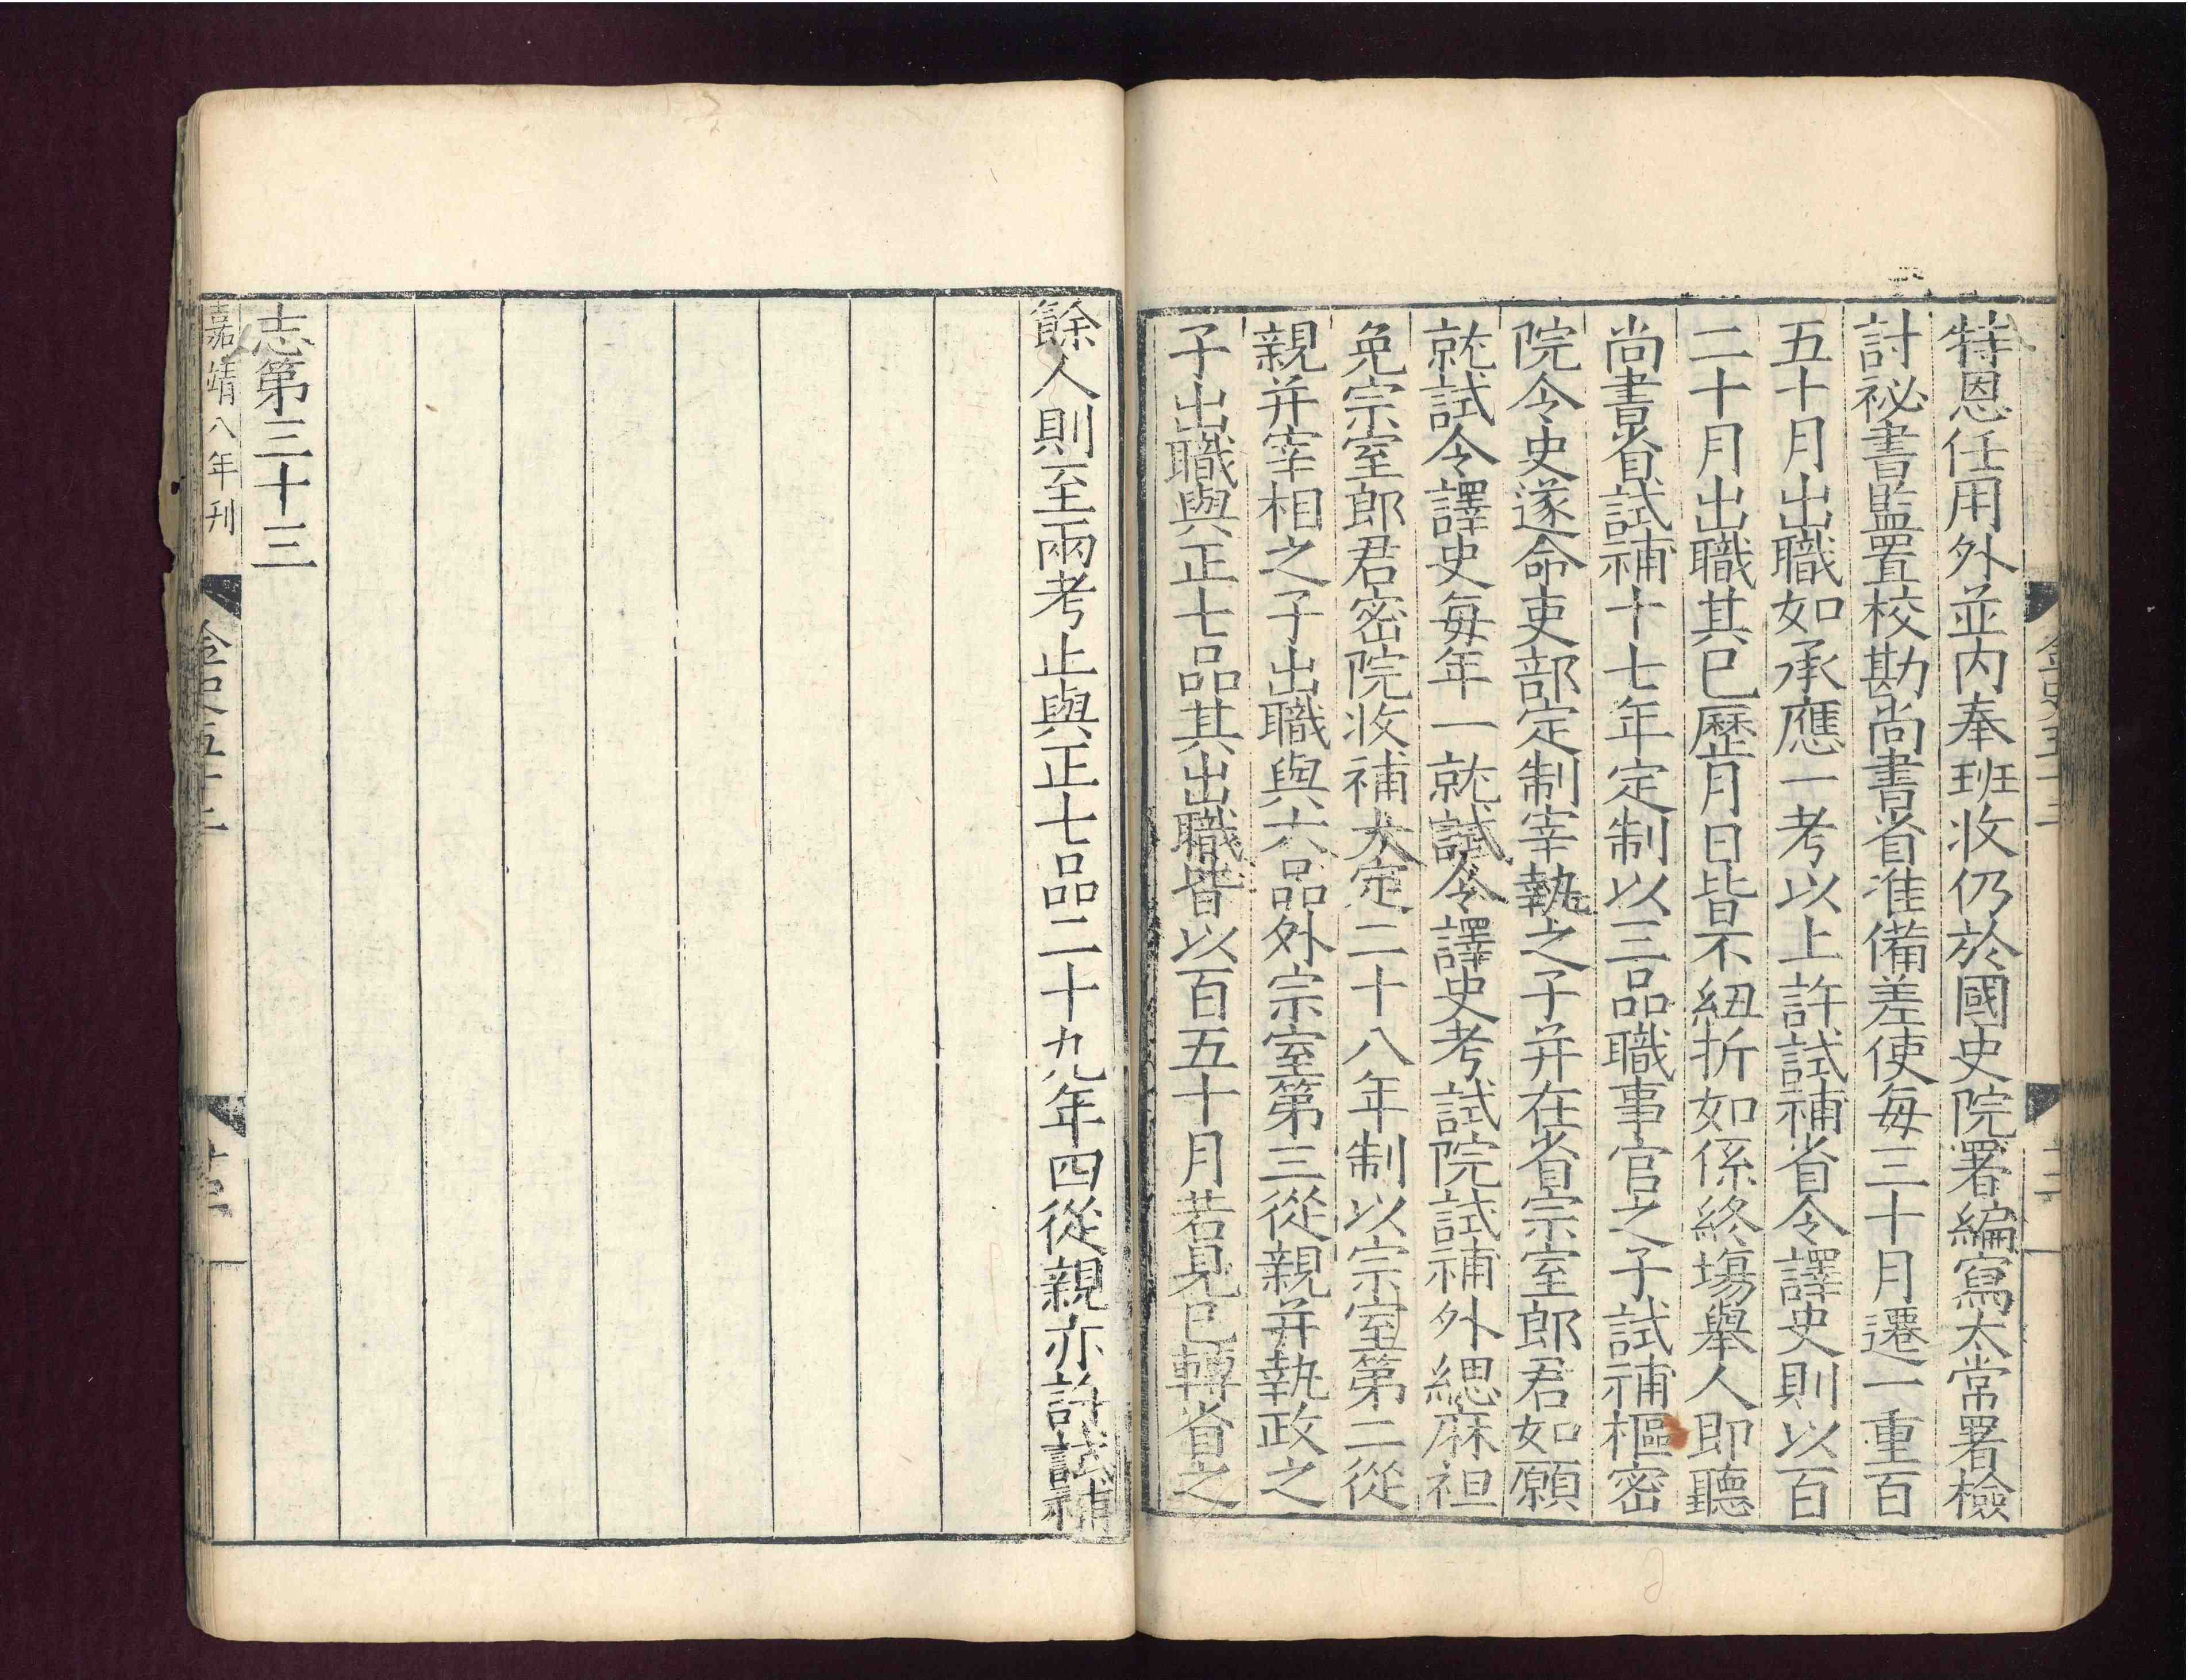 特恩任用外並内奉班收仍於國史院署編寫太常署檢
討祕書監置校勘尚書省准備差使每三十月遷一重百
五十月出職如承應一考以上許試補省令譯史則以百
二十月出職其已歷月日皆不紐折如係終塲舉人即聽
尚書省試補十七年定制以三品職事官之子試補樞密
院令史遂命吏部定制宰執之子并在省宗室郎君如願
就試令譯史每年一就試令譯史考試院試補外緦麻袒
免宗室郎君密院收補大定二十八年制以宗室第二從
親并宰相之子出職與六品外宗室第三從親并執政之
子出職與正七品其出職皆以百五十月若見已轉省之
餘人則至兩考止與正七品二十九年四從親亦許試補
志第三十三
嘉靖八年刊
金史五十三